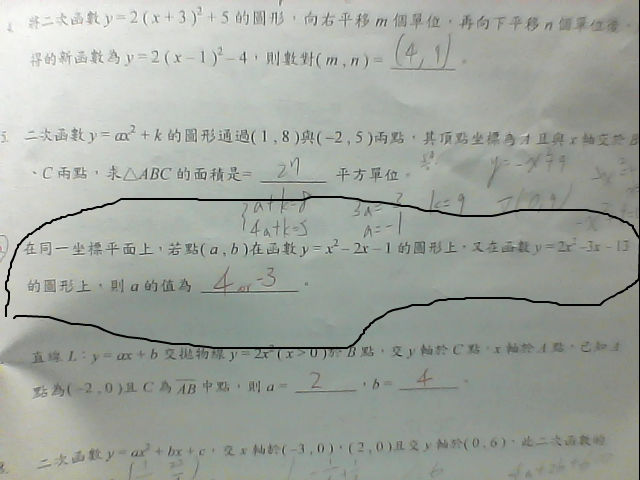 將二次函數 y=2(x+3)²+5 的圖形，向右平移 m 個單位，再向下平移 n 個單位後，
得的新函數為 y=2(x−1)²−4，則數對(m,n)= (4,9) 。
二次函數 y=ax²+k 的圖形通過(1,8)與(−2,5)兩點，其頂點坐標為 A 且與 x 軸交於 B
、C 兩點，求△ABC 的面積是= 27 平方單位。 y=-x²+9
a+k=8 3a=-3 k=9
4a+k=5 a=-1
在同一坐標平面上，若點(a,b)在函數 y=x²−2x−1 的圖形上，又在函數 y=2x²−3x−13
的圖形上，則 a 的值為 4 or -3 。
直線 L：y=ax+b 交拋物線 y=2x²(x>0)於 B 點，交 y 軸於 C 點，x 軸於 A 點，已知 A
點為(−2,0)且 C 為 AB 中點，則 a= 2 ，b= 4 。
二次函數 y=ax²+bx+c，交 x 軸於(−3,0)，(2,0)且交 y 軸於(0,6)，此二次函數的